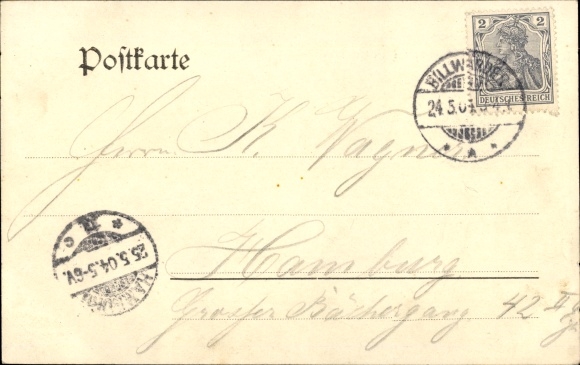 Postkarte
2 2
DEUTSCHES REICH
BILLWÄRDER
24.5.04
Herrn K. Wagner
Hamburg
25.5.04.5-6V.
HAMBURG
Grosser Bäckergang 42 II